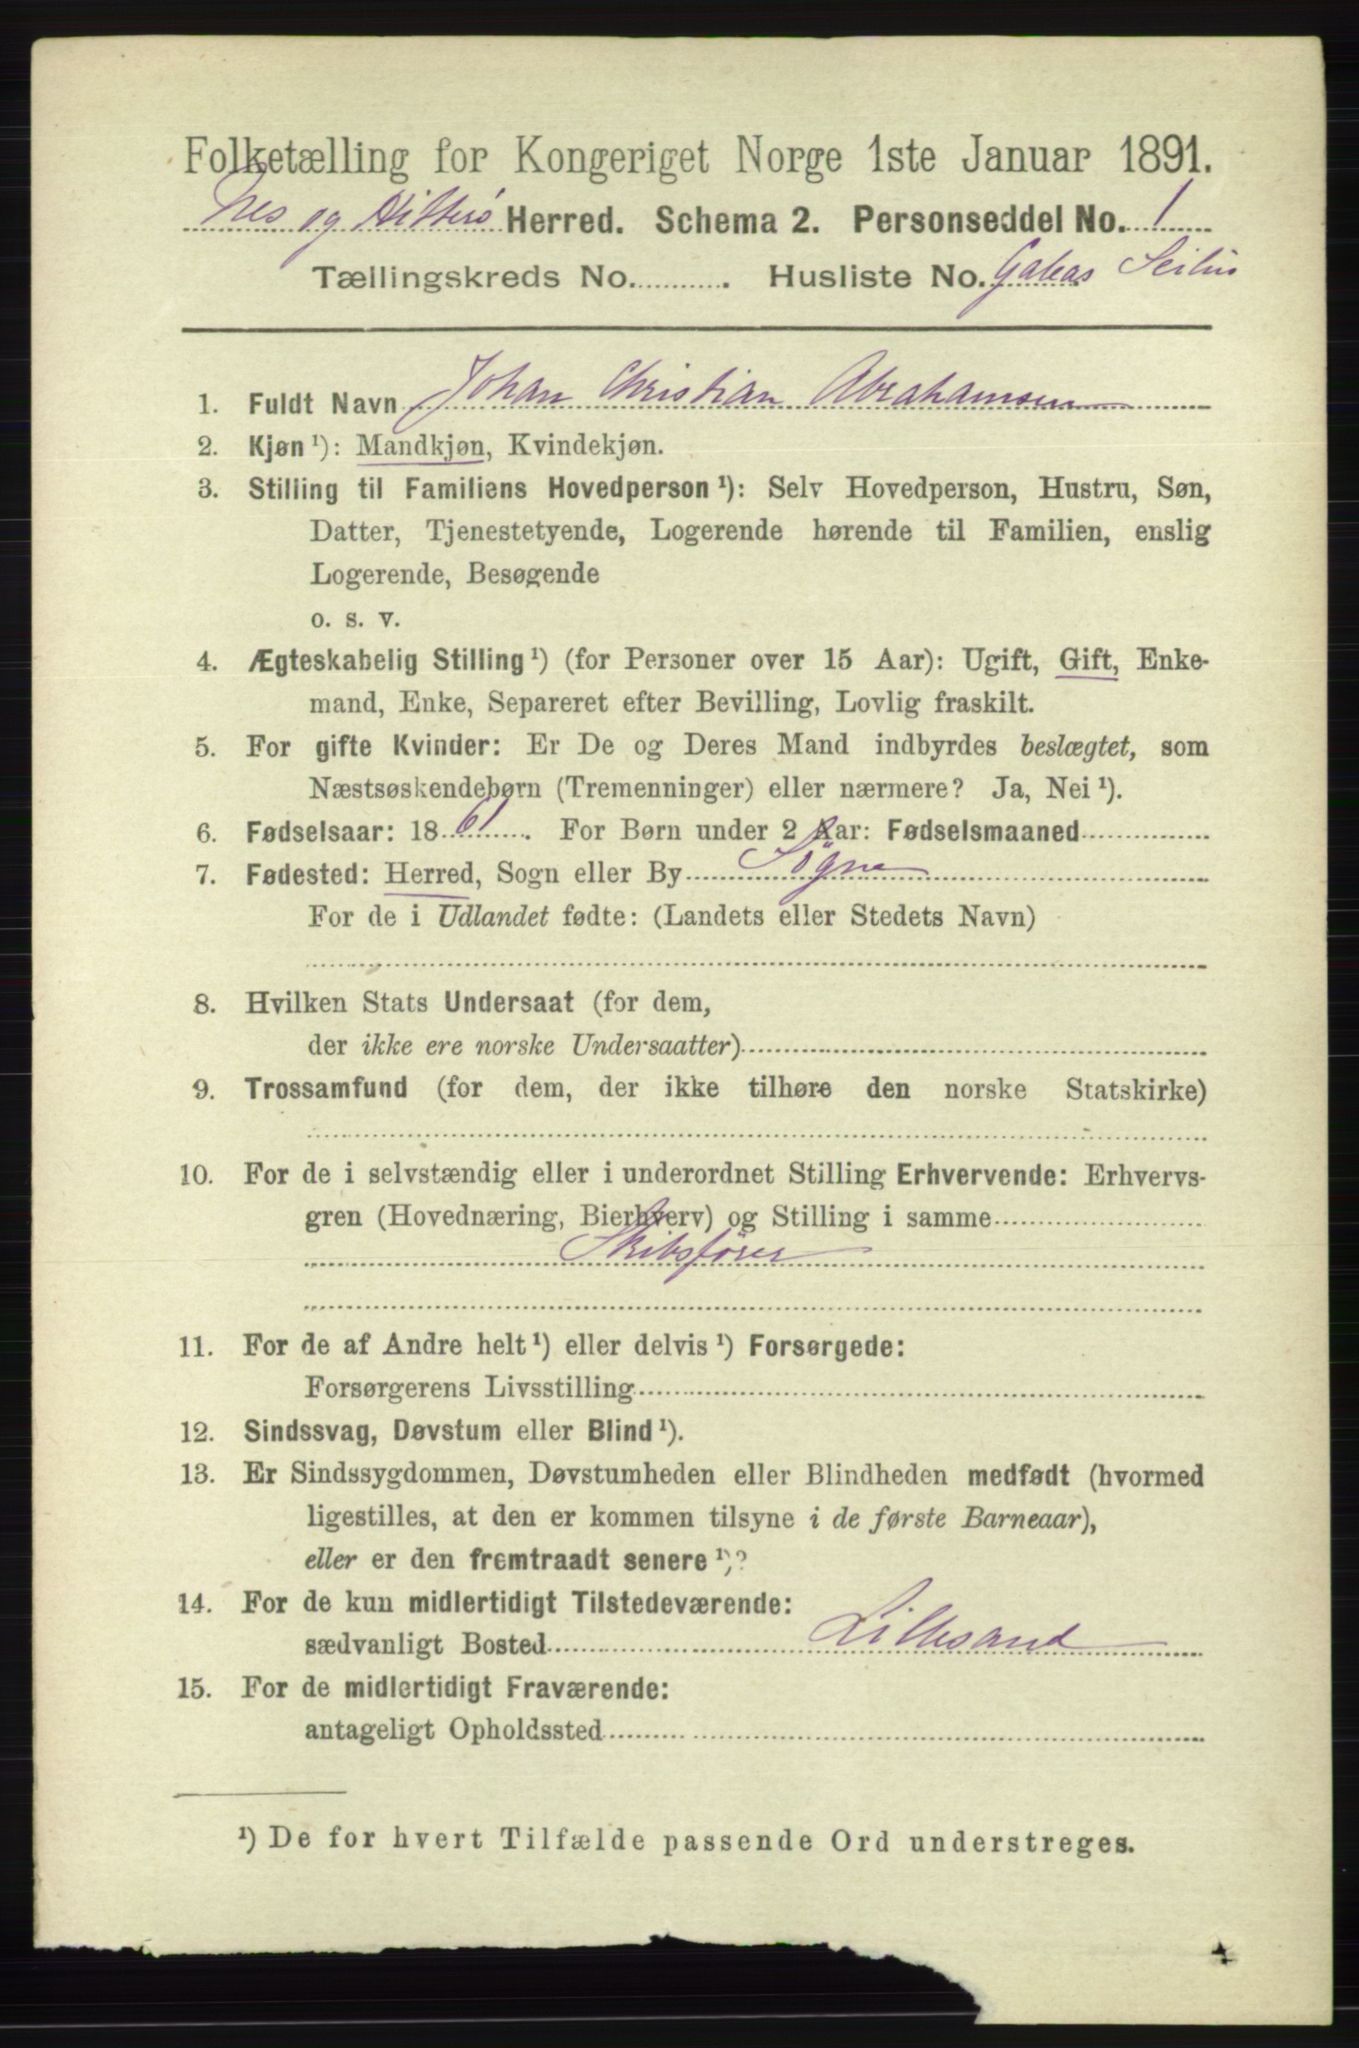 Folketælling for Kongeriget Norge 1ste Januar 1891.
Nes og Hitterö Herred. Schema 2. Personseddel No. 1
Tællingskreds No. Husliste No. Galeas
1. Fuldt Navn Johan Christian Abrahamsen
2. Kjøn ¹): Mandkjøn, Kvindekjøn.
3. Stilling til Familiens Hovedperson ¹): Selv Hovedperson, Hustru, Søn,
Datter, Tjenestetyende, Logerende hørende til Familien, enslig
Logerende, Besøgende
o. s. v.
4. Ægteskabelig Stilling ¹) (for Personer over 15 Aar): Ugift, Gift, Enke-
mand, Enke, Separeret efter Bevilling, Lovlig fraskilt.
5. For gifte Kvinder: Er De og Deres Mand indbyrdes beslægtet, som
Næstsøskendebørn (Tremenninger) eller nærmere? Ja, Nei ¹).
6. Fødselsaar: 1861. For Børn under 2 Aar: Fødselsmaaned
7. Fødested: Herred, Sogn eller By Sögne
For de i Udlandet fødte: (Landets eller Stedets Navn)
8. Hvilken Stats Undersaat (for dem,
der ikke ere norske Undersaatter)
9. Trossamfund (for dem, der ikke tilhøre den norske Statskirke)
10. For de i selvstændig eller i underordnet Stilling Erhvervende: Erhvervs-
gren (Hovednæring, Bierhverv) og Stilling i samme
Skibsförer
11. For de af Andre helt ¹) eller delvis ¹) Forsørgede:
Forsørgerens Livsstilling
12. Sindssvag, Døvstum eller Blind ¹).
13. Er Sindssygdommen, Døvstumheden eller Blindheden medfødt (hvormed
ligestilles, at den er kommen tilsyne i de første Barneaar),
eller er den fremtraadt senere ¹)?
14. For de kun midlertidigt Tilstedeværende:
sædvanligt Bosted Lillesand
15. For de midlertidigt Fraværende:
antageligt Opholdssted
¹) De for hvert Tilfælde passende Ord understreges.